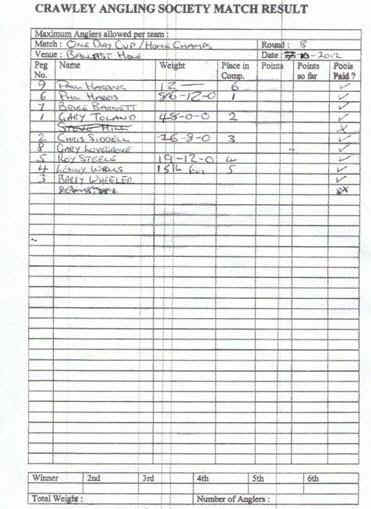 CRAWLEY ANGLING SOCIETY MATCH RESULT
Maximum Anglers allowed per team :
Match : One Day Cup / Home Champs Round : 8
Venue : Date : -2012
Peg No. Name Weight Place in Comp. Points Points so far Pools Paid ?
9 Paul 12 — 6 ✓
6 Phil Harris 86-12-0 1 ✓
7 Bruce Barnett ✓
1 Gary Toland 48-0-0 2 ✓
Steve Hill x
2 Chris Siddell 26-8-0 3 ✓
8 Gary Lovegrove ✓
5 Roy Steele 19-12-0 4 ✓
4 Lenny 15lb 5 ✓
3 Barry Wheeler ✓
Winner 2nd 3rd 4th 5th 6th
Total Weight : Number of Anglers :